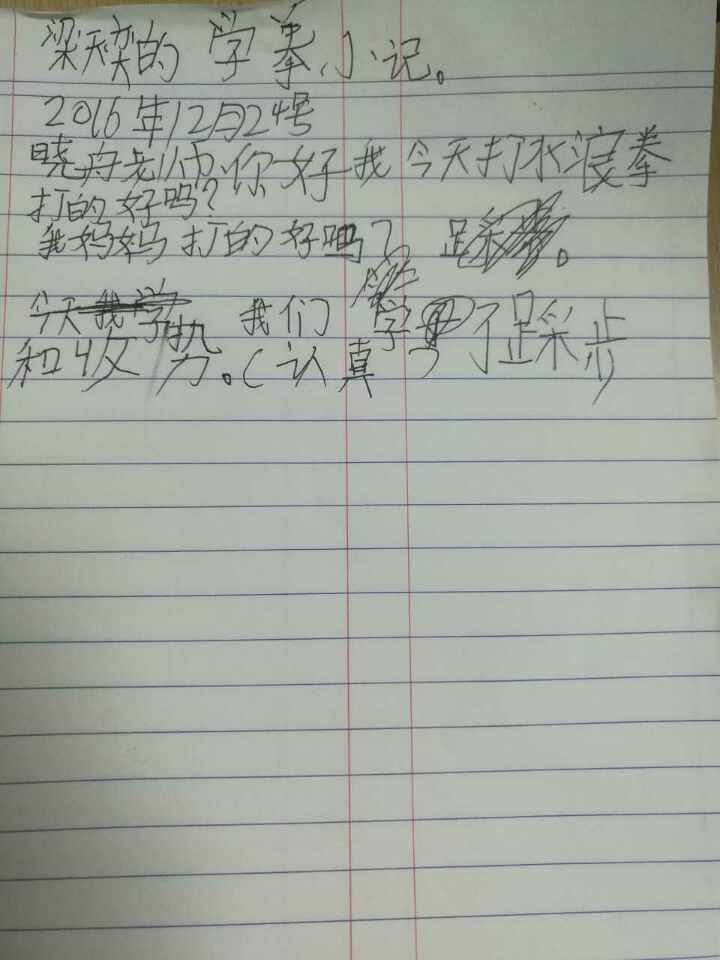 梁天奕的 学拳小记。
2016年12月24号
晓舟老师你好我今天打水浪拳
打的好吗?
我妈妈打的好吗?
今天我学 我们 学 了足采步
和4收势。(认真)